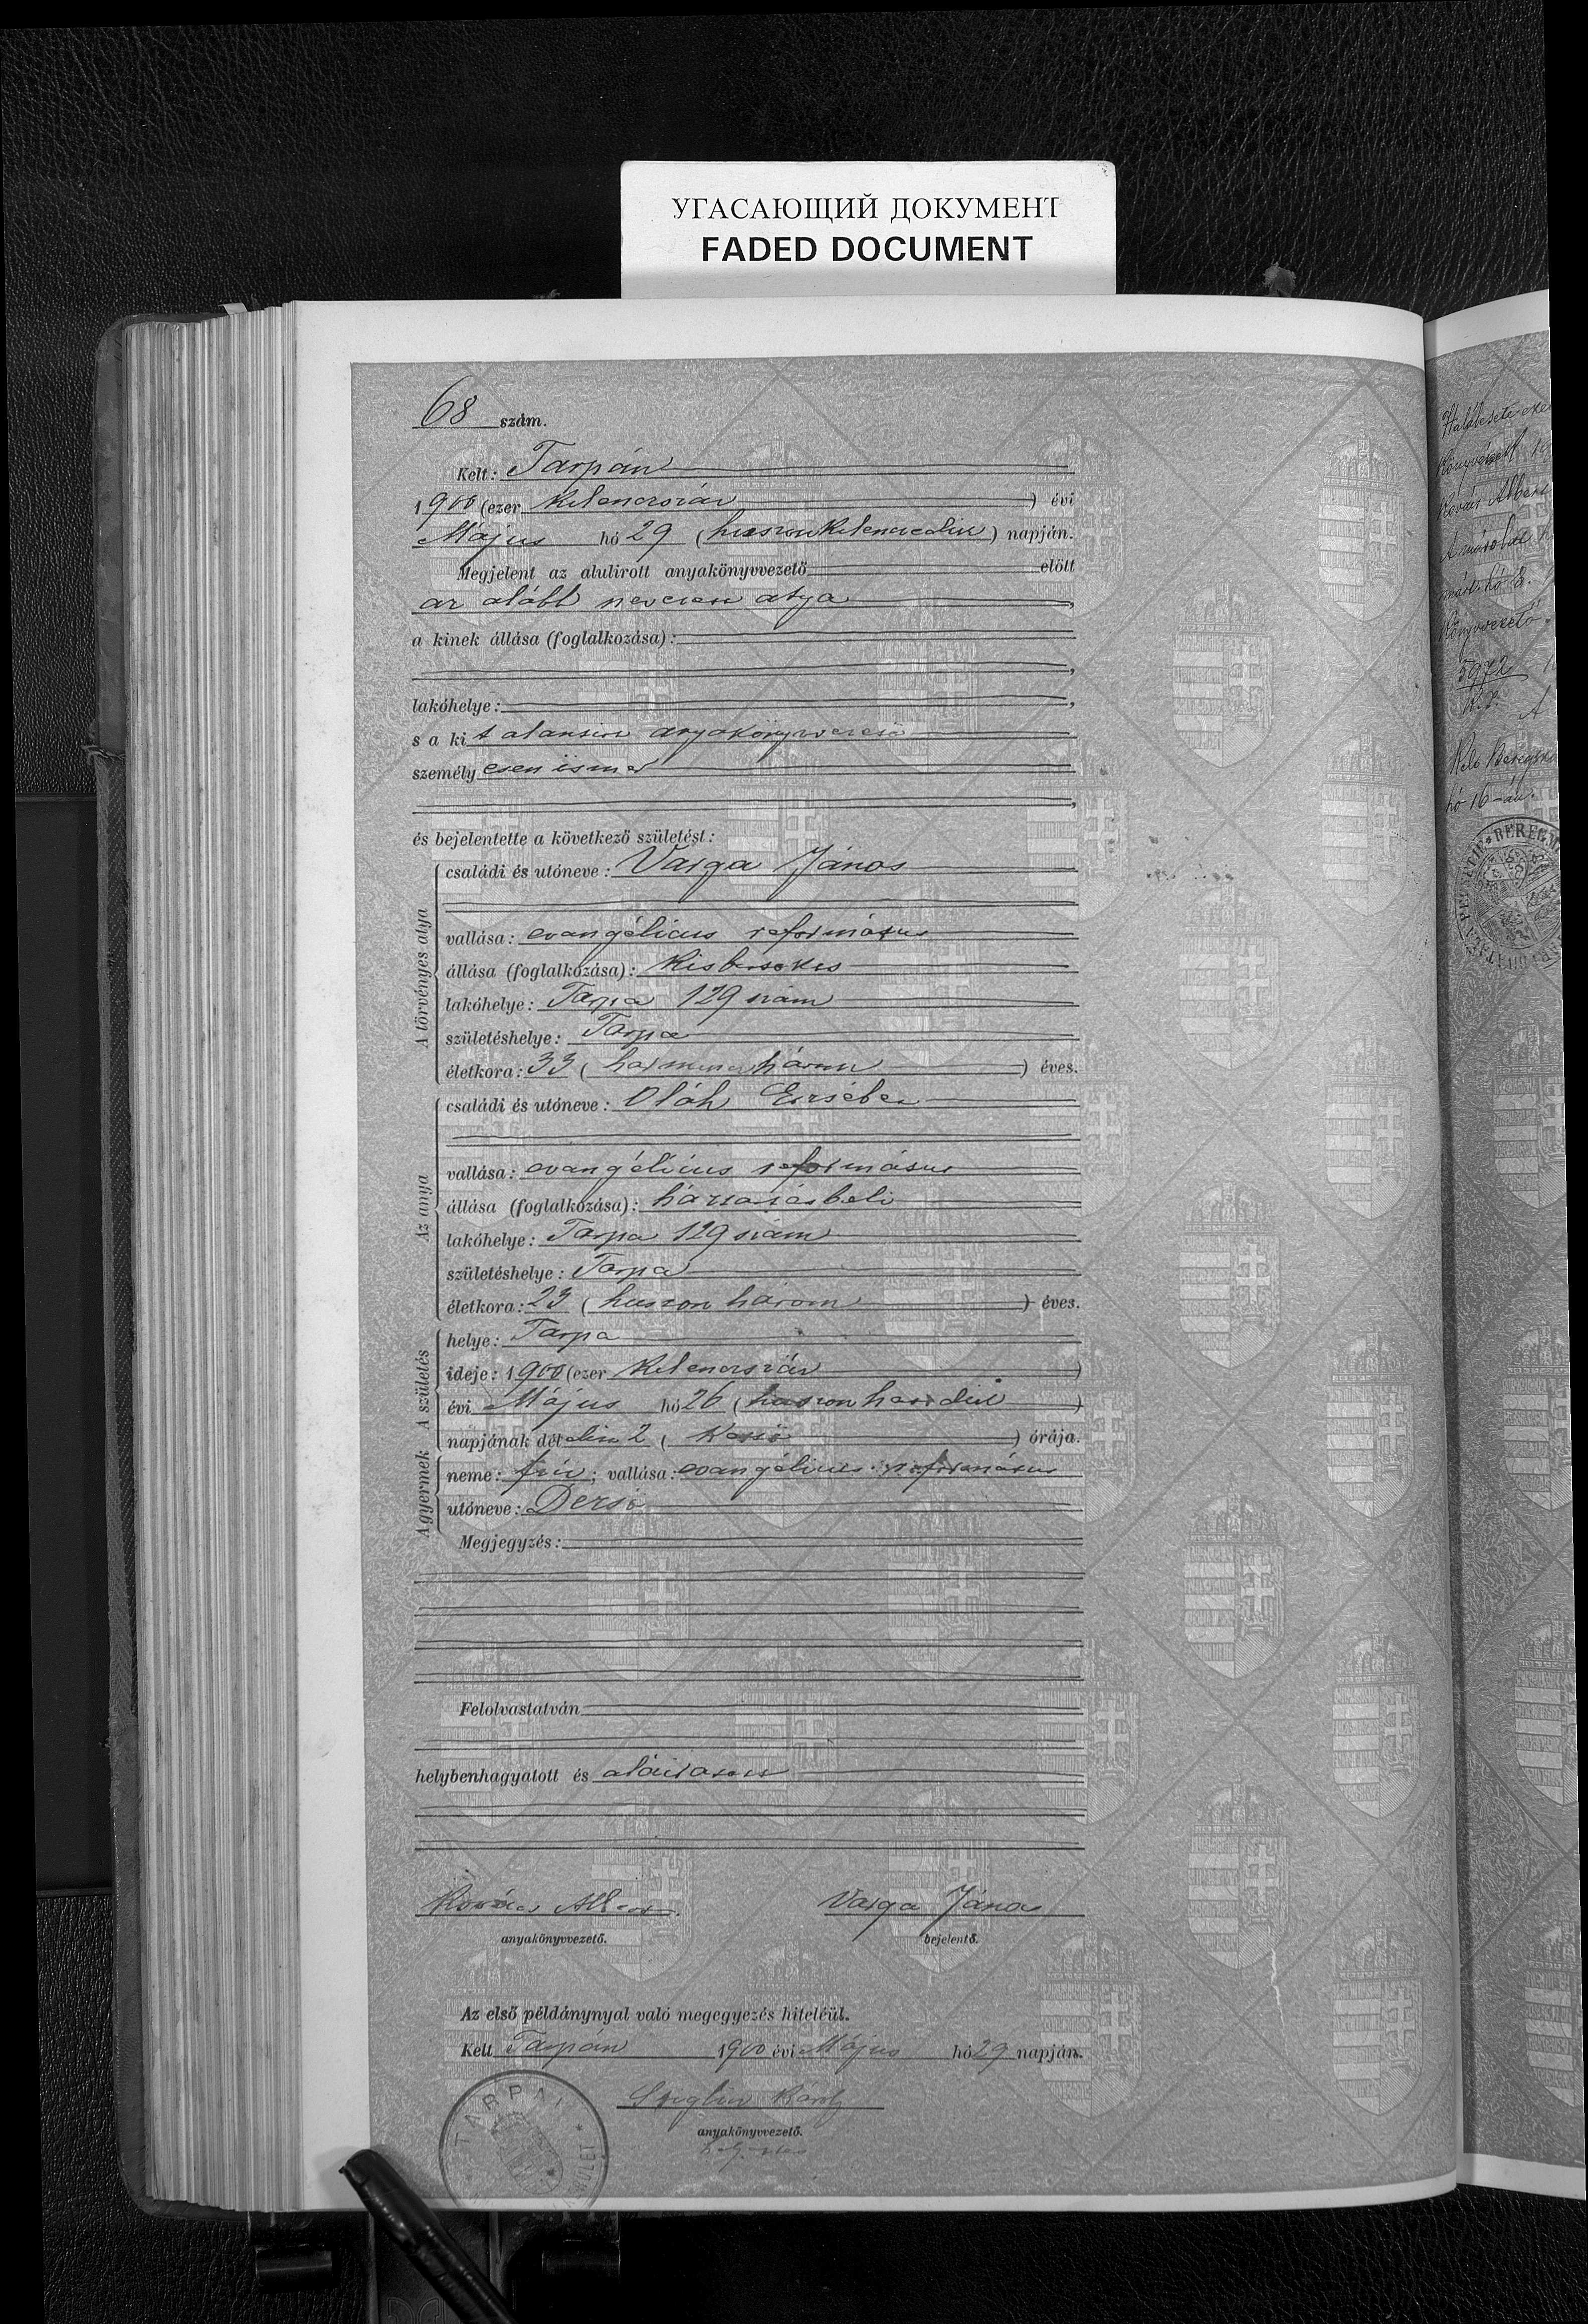 УГАСАЮЩИЙ ДОКУМЕНТ
FADED DOCUMENT
68 szám.
Kelt: Tarpán
1900 (ezer kilenczszáz ) évi
Május hó 29 (huszonkilenczedik) napján.
Megjelent az alulirott anyakönyvvezető előtt
az alább nevezett atya,
a kinek állása (foglalkozása):
lakóhelye:
s a kit alantirt anyakönyvvezető
személyesen ismer
és bejelentette a következő születést:
A törvényes atya
családi és utóneve: Varga János
vallása: evangélicus református
állása (foglalkozása): kisbirtokos
lakóhelye: Tarpa 129 szám
születéshelye: Tarpa
életkora: 33 (harminczhárom) éves.
Az anya
családi és utóneve: Oláh Erzsébet
vallása: evangélicus református
állása (foglalkozása): háztartásbeli
lakóhelye: Tarpa 129 szám
születéshelye: Tarpa
életkora: 23 (huszon három) éves.
A születés
helye: Tarpa
ideje: 1900 (ezer kilenczszáz )
évi Május hó 26 (huszon hatodik )
napjának délelőtt 2 ( ) órája.
A gyermek
neme: fiú; vallása: evangélicus református
utóneve: Dezső
Megjegyzés:
Felolvastatván
helybenhagyatott és aláiratott
Kovács Albert
Varga János
anyakönyvvezető.
bejelentő.
Az első példánynyal való megegyezés hiteléül.
Kelt Tarpán 1900 évi Május hó 29 napján.
Károly
anyakönyvvezető.
TARPAI
könyvvezető
5972
hó 16-án.